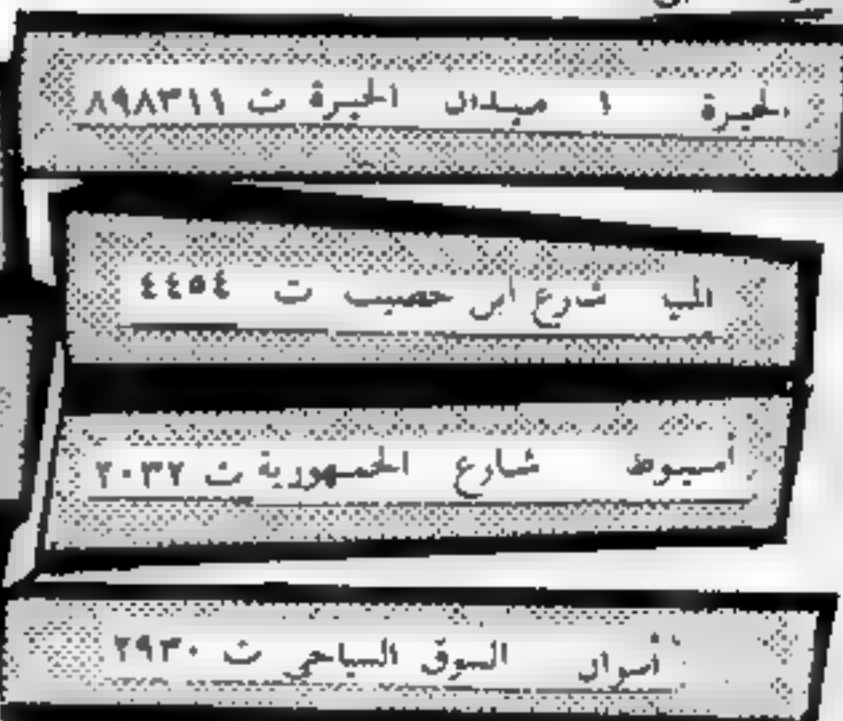 الجيزة ١ ميدان الجيزة ت ٨٩٨٣١١
المنيا شارع ابن خصيب ت ٤٤٥٤
أسيوط شارع الجمهورية ت ٢٠٣٢
أسوان السوق السياحي ت ٢٩٣٠